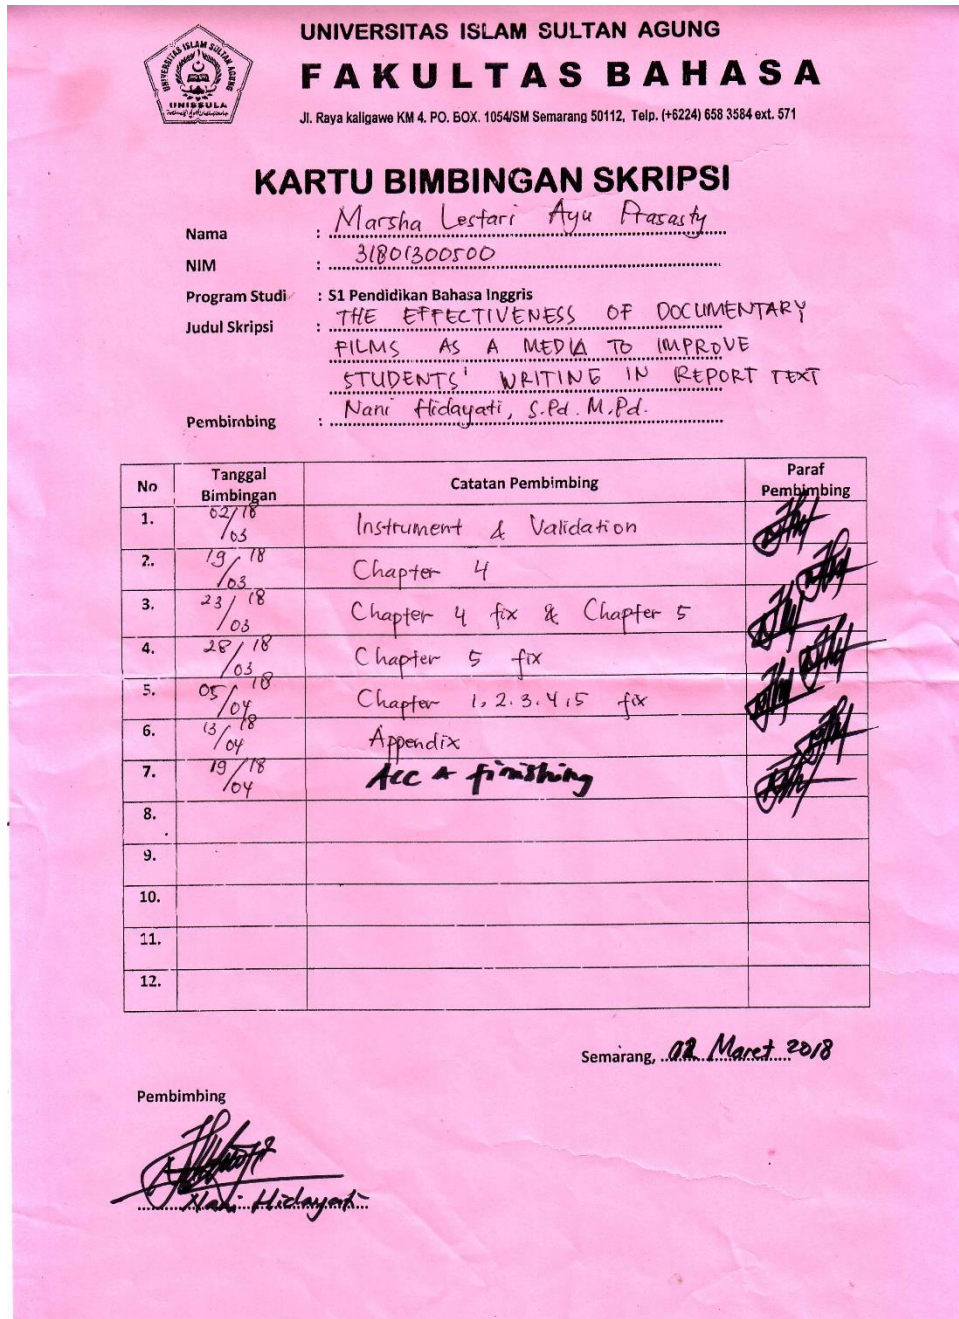 UNIVERSITAS ISLAM SULTAN AGUNG
UNISSULA
UNIVERSITAS ISLAM SULTAN AGUNG
FAKULTAS BAHASA
Jl. Raya kaligawe KM 4. PO. BOX. 1054/SM Semarang 50112, Telp. (+6224) 658 3584 ext. 571
KARTU BIMBINGAN SKRIPSI
Nama : Marsha Lestari Ayu Prasasty
NIM : 31801300500
Program Studi : S1 Pendidikan Bahasa Inggris
Judul Skripsi : THE EFFECTIVENESS OF DOCUMENTARY
FILMS AS A MEDIA TO IMPROVE
STUDENTS' WRITING IN REPORT TEXT
Pembimbing : Nani Hidayati, S.Pd. M.Pd.
No Tanggal Bimbingan Catatan Pembimbing Paraf Pembimbing
1. 02/03 18 Instrument & Validation
2. 19/03 18 Chapter 4
3. 23/03 18 Chapter 4 fix & Chapter 5
4. 28/03 18 Chapter 5 fix
5. 05/04 18 Chapter 1, 2. 3. 4, 5 fix
6. 13/04 18 Appendix
7. 19/04 18 Acc & finishing
8.
9.
10.
11.
12.
Semarang, 02 Maret 2018
Pembimbing
Nani Hidayati